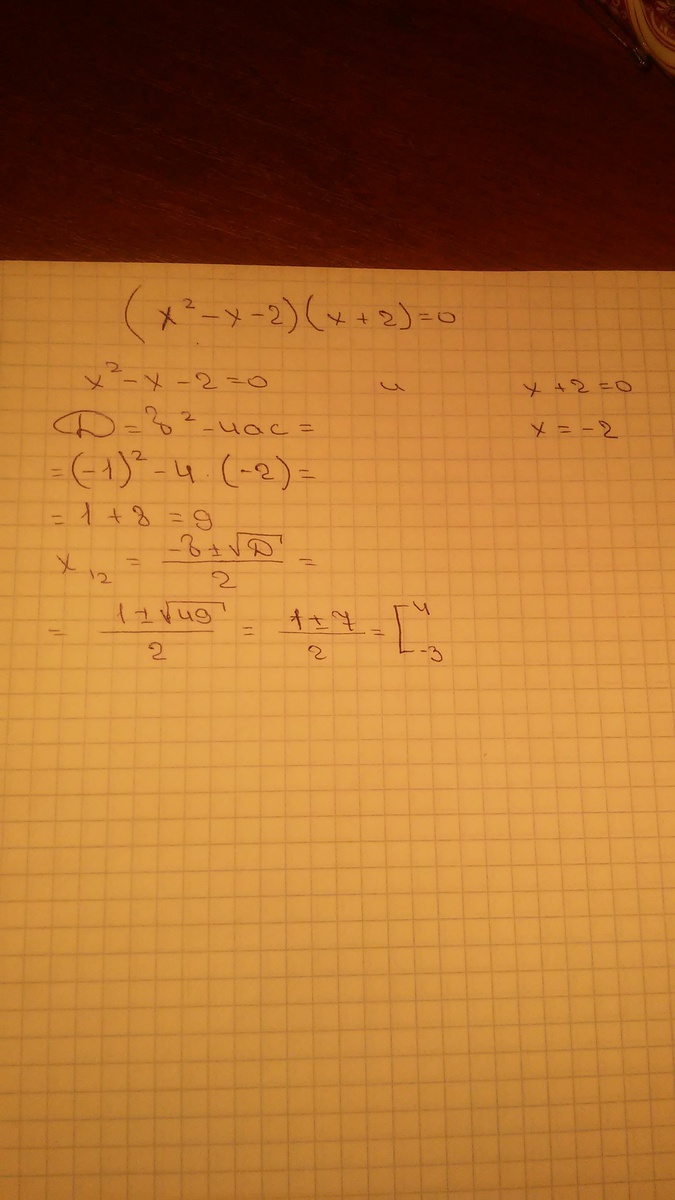 (x² - x - 2)(x + 2) = 0
x² - x - 2 = 0 и x + 2 = 0
D = b² - 4ac = x = -2
= (-1)² - 4 · (-2) =
= 1 + 8 = 9
x₁₂ = (-b ± √D) / 2 =
= (1 ± √49) / 2 = (1 ± 7) / 2 = [ 4 -3